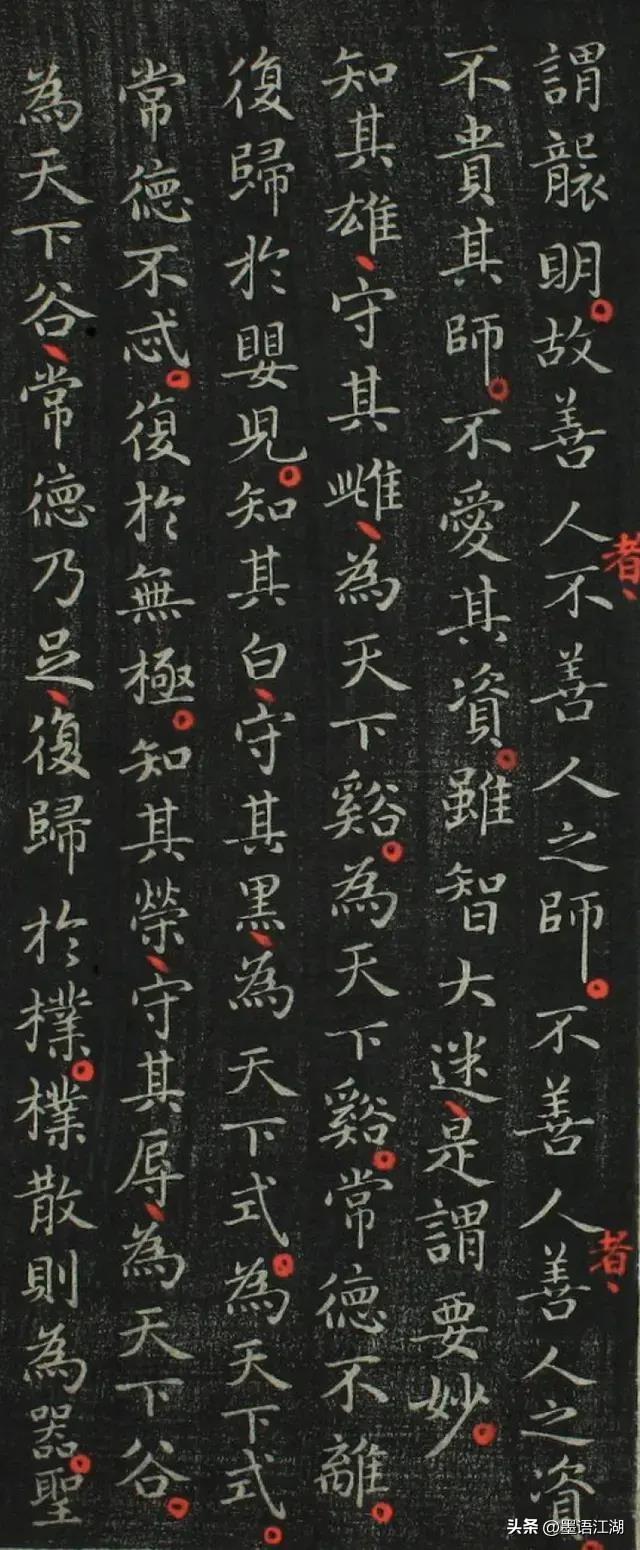 謂襲明。故善人者、不善人之師。不善人者、善人之資。
不貴其師。不愛其資。雖智大迷、是謂要妙。
知其雄、守其雌、為天下谿。為天下谿。常德不離。
復歸於嬰兒。知其白、守其黑、為天下式。為天下式。
常德不忒。復於無極。知其榮、守其辱、為天下谷。
為天下谷、常德乃足、復歸於樸。樸散則為器。聖
头条 @墨语江湖